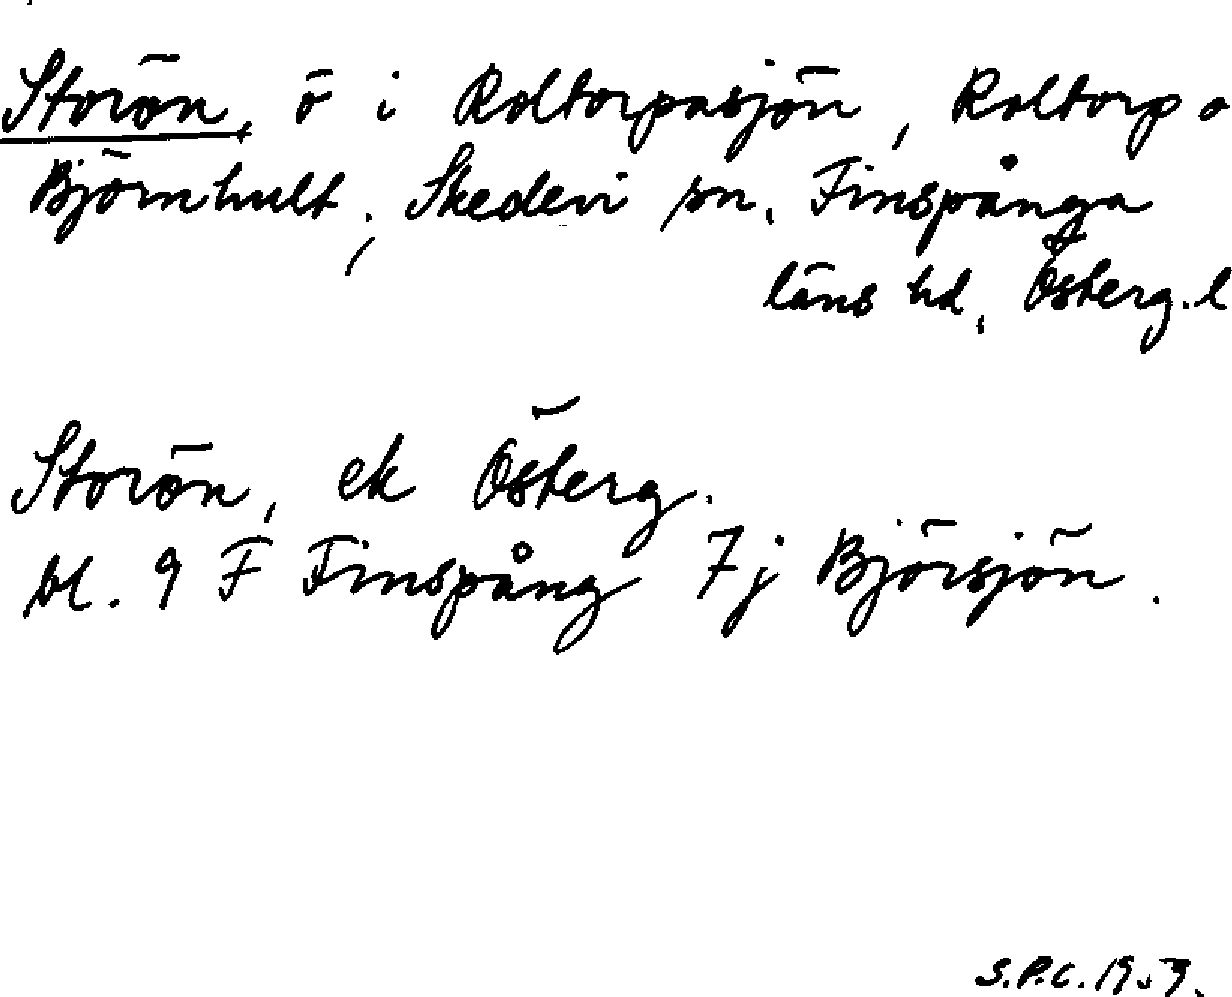 Storön, ö i Roltorpasjön, Roltorp o
Björnhult, Skedevi sn, Finspånga
läns hd, Österg. l
Storön, ek Österg.
bl. 9 F Finspång 7j Björsjön.
S.P.C. 19